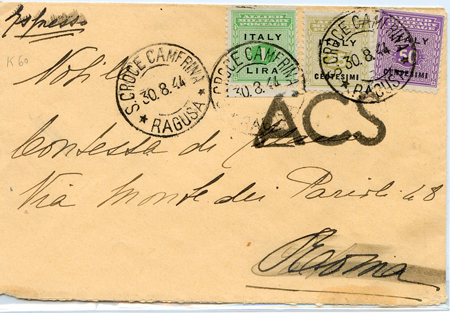 Espresso
K 60
Nobile
Contessa di
Via Monte dei Parioli 48
Roma
ALLIED MILITARY POSTAGE
ITALY
LIRA
ITALY
CENTESIMI
ITALY
50
CENTESIMI
S. CROCE CAMERINA
30.8.44
★ RAGUSA ★
S. CROCE CAMERINA
30.8.44
S. CROCE CAMERINA
30.8.44
★ RAGUSA
ACS